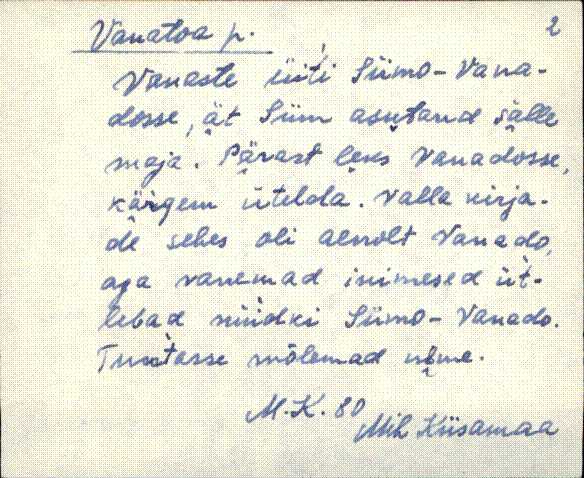 Vanatoa p. 2
Vanaste üiti Siimo-Vana-
dosse, ät Siim asutand sälle
maja. Pärast leks Vanadosse,
kärgem ütelda. Valla kirja-
de sehes oli aenolt Vanado,
aga vanemad inimesed üt-
lebad nüidki Siimo-Vanado.
Tuntasse mõlemad nime.
M.K. 80
Mih Kiisamaa